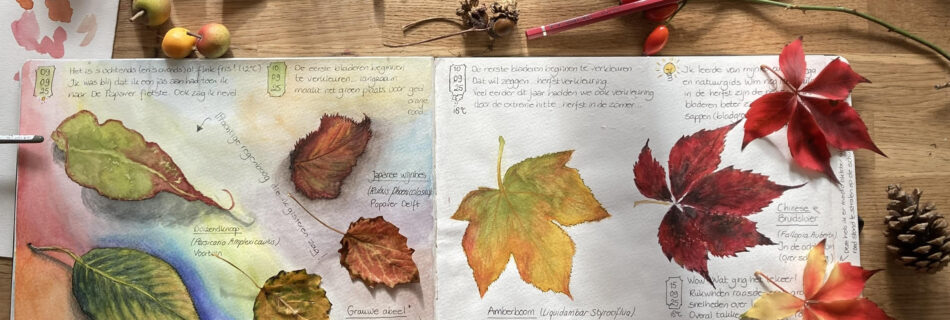 09
09
25
Het is 's ochtends (en 's avonds) al flink fris! (12°C)
Ik was blij dat ik een jas aan had toen ik
naar De Papaver fietste. Ook zag ik nevel
10
09
25
De eerste bladeren beginnen
te verkleuren, langzaam
maakt het groen plaats voor geel
oranje
rood...
Prachtige regenboog
gisteren
Duizendknoop
(Persicaria Amplexicaulis)
Voortuin
Japanse wijnbes
(Rubus Phoenicolasius)
Papaver Delft
Grauwe abeel
10
09
25
18°C
De eerste bladeren beginnen te verkleuren
Dat wil zeggen: herfstverkleuring
Veel eerder dit jaar hadden we ook verkleuring
door de extreme hitte... herfst in de zomer...
Ik leerde van mijn
en natuurgids Wim
in de herfst zijn de
bladeren beter
sappen
Chinese
Bruidsluier
(Fallopia Aubertii)
In de achter
(over
Amberboom (Liquidambar Styraciflua)
15
09
25
18°C
Wow Wat ging het tekeer!
Rukwinden
snelheden over
Overal takken